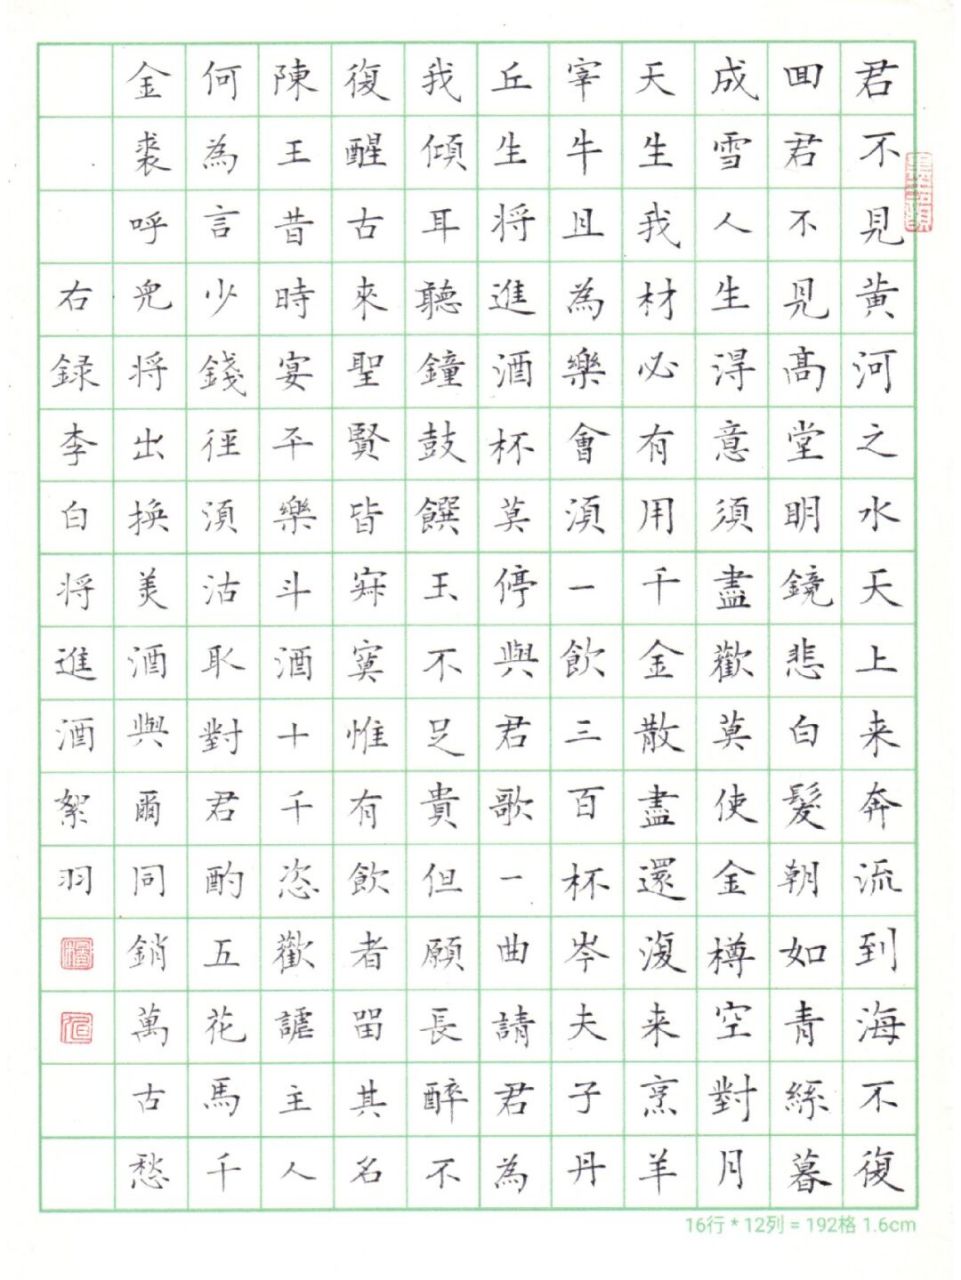 君不見黃河之水天上来奔流到海不復
回君不見高堂明鏡悲白髮朝如青絲暮
成雪人生得意須盡歡莫使金樽空對月
天生我材必有用千金散盡還復来烹羊
宰牛且為樂會須一飲三百杯岑夫子丹
丘生将進酒杯莫停與君歌一曲請君為
我傾耳聽鐘鼓饌玉不足貴但願長醉不
復醒古來聖賢皆寂寞惟有飲者留其名
陳王昔時宴平樂斗酒十千恣歡謔主人
何為言少錢徑須沽取對君酌五花馬千
金裘呼兒将出換美酒與爾同銷萬古愁
右録李白将進酒絮羽
16行 * 12列 = 192格 1.6cm